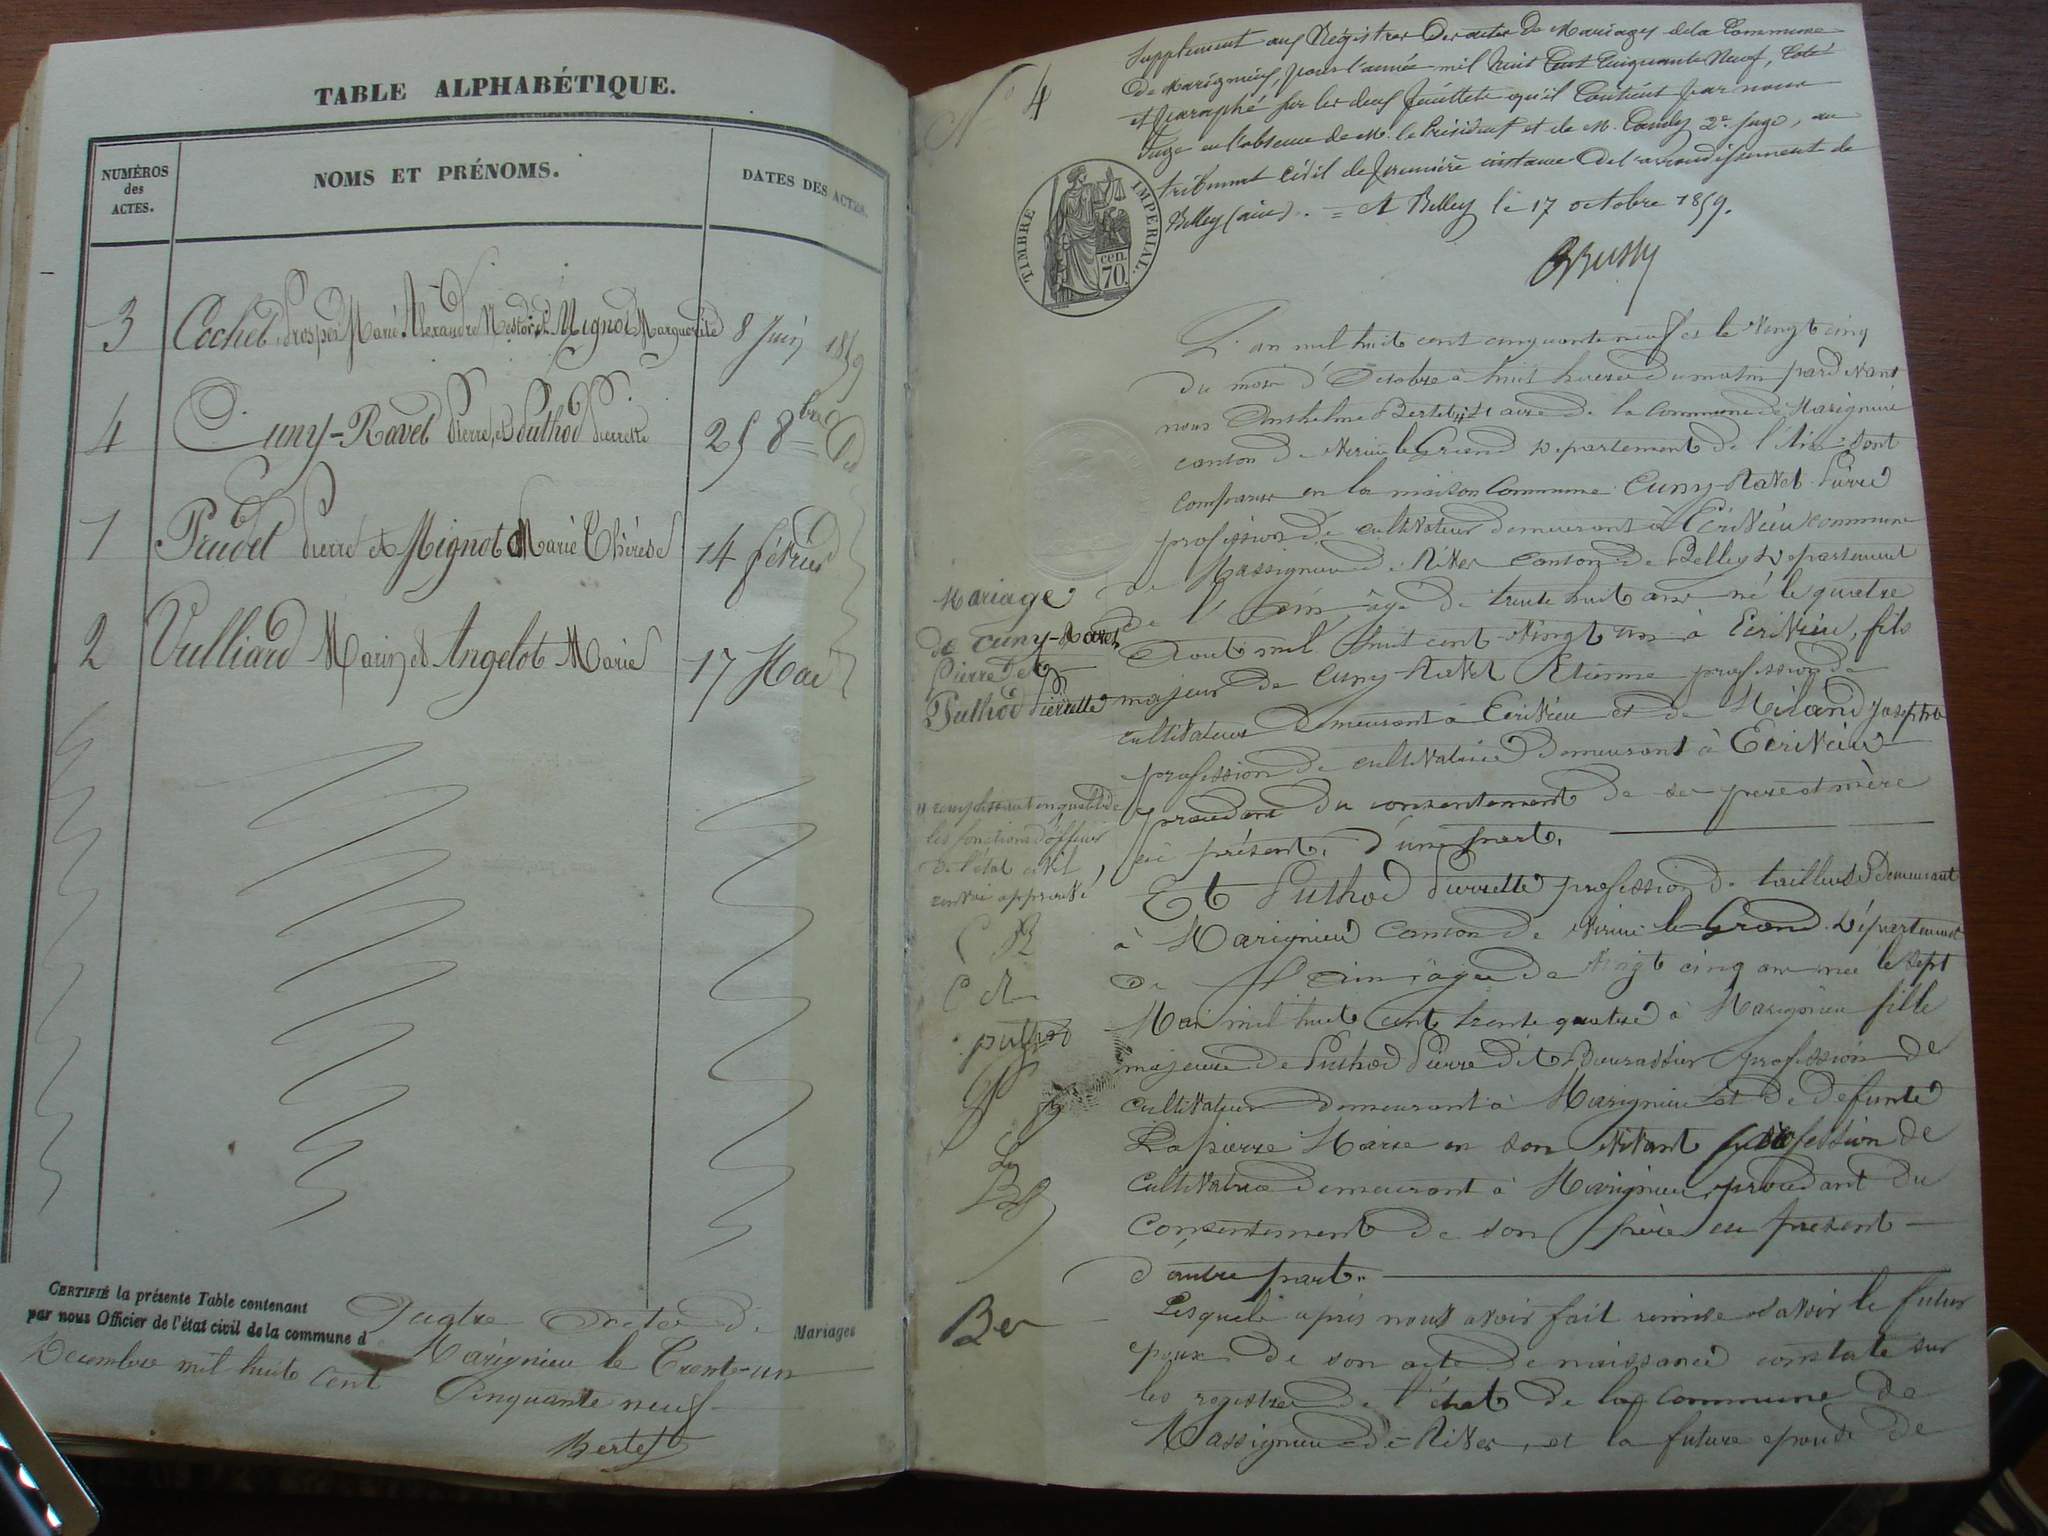 TABLE ALPHABÉTIQUE.
NUMÉROS
des
ACTES.
NOMS ET PRÉNOMS.
DATES DES ACTES.
3 Cochet Prosper Marie Alexandre Nestor et Mignot Marguerite 8 Juin 1859
4 Cuny-Ravet Pierre, et Puthod Pierrette 25 8bre
1 Prudel Pierre et Mignot Marie Thérèse 14 février
2 Vulliard Marin et Angelot Marie 17 Mai
CERTIFIÉ la présente Table contenant Quatre Actes de
par nous Officier de l'état civil de la commune d Marignieu le Trente-un
Décembre mil huit cent Cinquante neuf
Bertet
Mariages
N° 4
Supplément aux Régistres Des actes De Mariages de la Commune
De Marignieu, pour l'année mil huit Cent Cinquante Neuf, Coté
et paraphé sur les deux feuillets qu'il Contient par nous
Juge en l'absence de M. le Président et de M. 2e Juge, au
tribunal Civil de première instance De l'arrondissement de
Belley (ain). = A Belley le 17 octobre 1859.
TIMBRE IMPERIAL.
70 cen.
L'an mil huit cent cinquante neuf et le Vingt cinq
du mois d'Octobre à huit heures du matin par devant
nous Anthelme Bertet Maire de la Commune de Marignieu
canton de Virieu le Grand Département de l'Ain Sont
comparus en la maison Commune Cuny-Ravet Pierre
profession de cultivateur demeurant à Ecrivieu commune
de Massignieu de Rives Canton de Belley Département
de l'Ain, âgé de trente huit ans né le quatre
Aout mil huit cent Vingt un à Ecrivieu, fils
majeur de Cuny-Ravet Etienne profession de
cultivateur demeurant à Ecrivieu et de Miland Josephte
profession de cultivatrice demeurant à Ecrivieu
procédant du consentement de ses père et mère
ici présent, d'une part.
Et Puthod Pierrette profession de tailleuse demeurant
à Marignieu Canton de Virieu le Grand Département
de l'Ain âgée de Vingt cinq ans née le sept
Mai mil huit cent trente quatre à Marignieu fille
majeure de Puthod Pierre dit Bourassier profession de
cultivateur demeurant à Marignieu et de defunte
Lapierre Marie en son vivant profession de
cultivatrice demeurant à Marignieu, procédant du
consentement de son père ici présent
d'autre part.
Lesquels après nous avoir fait remise savoir le futur
époux de son acte de naissance constaté sur
les registres de l'état de la commune de
Massignieu de Rives, et la future épouse de
Mariage
de Cuny-Ravet
Pierre et
Puthod Pierrette
remplissant en qualité de
les fonctions d'officier
de l'état civil
renvoi approuvé
C R
puthod
Ber